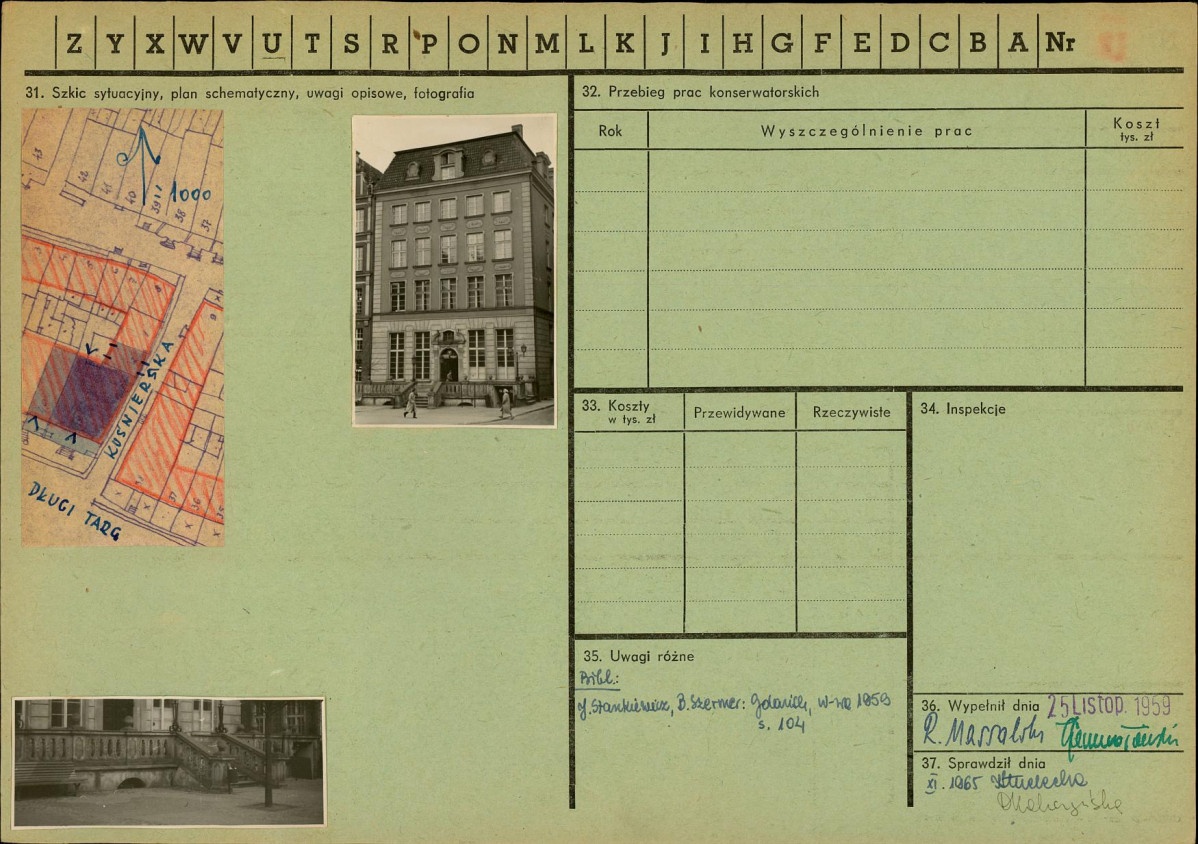 Z Y X W V U T S R P O N M L K J I H G F E D C B A Nr
31. Szkic sytuacyjny, plan schematyczny, uwagi opisowe, fotografia
43
42
41
40
39
38
37
1000
KUŚNIERSKA
DŁUGI TARG
32. Przebieg prac konserwatorskich
Rok
Wyszczególnienie prac
Koszt
tys. zł
33. Koszty
w tys. zł
Przewidywane
Rzeczywiste
34. Inspekcje
35. Uwagi różne
Bibl.:
J. Stankiewicz, B. Szermer: Gdańsk, W-wa 1959
s. 104
36. Wypełnił dnia 25 LISTOP. 1959
R. Massalski
37. Sprawdził dnia
XI. 1965